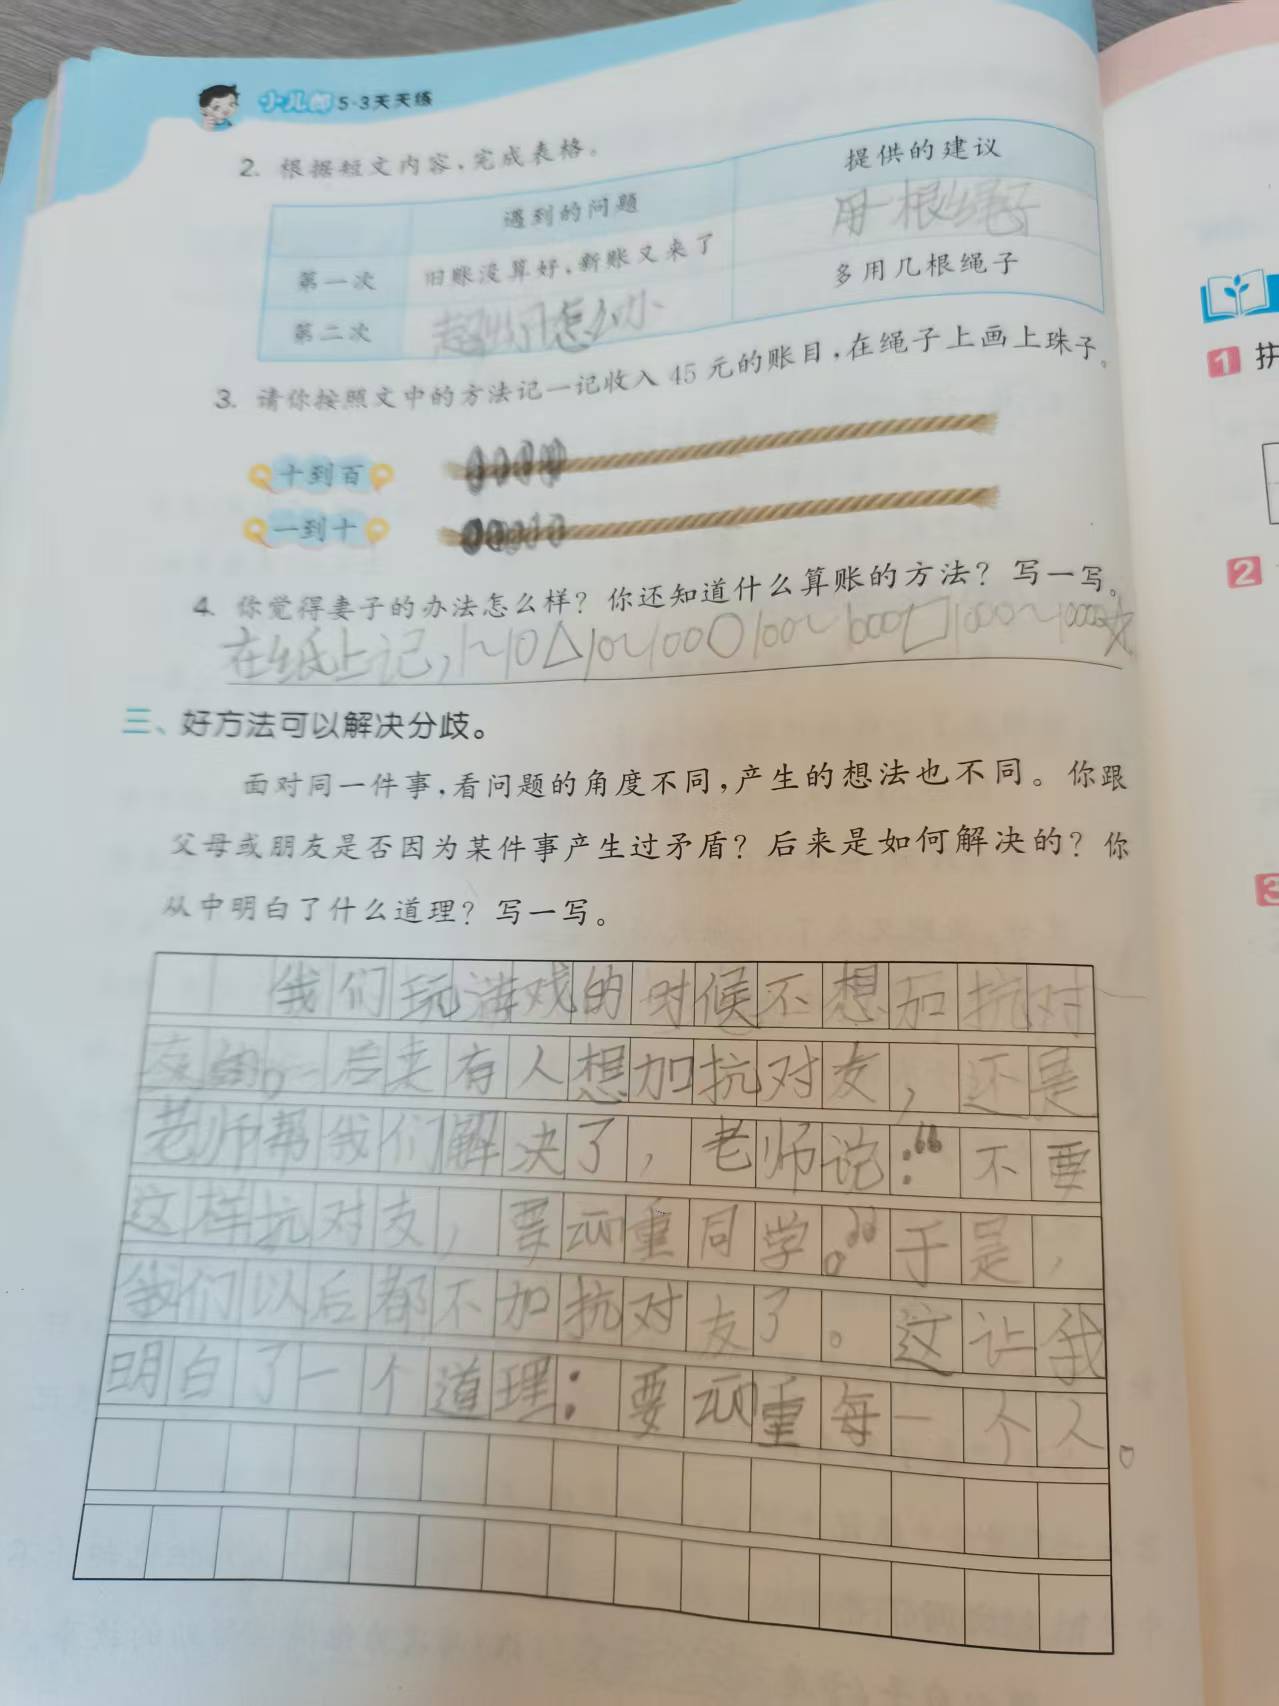 小儿郎 5·3天天练
2. 根据短文内容，完成表格。
遇到的问题 提供的建议
第一次 旧账没算好，新账又来了 用一根绳子
第二次 超出了怎么办 多用几根绳子
3. 请你按照文中的方法记一记收入 45 元的账目，在绳子上画上珠子。
十到百
一到十
4. 你觉得妻子的办法怎么样？你还知道什么算账的方法？写一写。
在纸上记，1~10△10~100○100~1000□1000~10000☆
三、好方法可以解决分歧。
面对同一件事，看问题的角度不同，产生的想法也不同。你跟
父母或朋友是否因为某件事产生过矛盾？后来是如何解决的？你
从中明白了什么道理？写一写。
我们玩游戏的时候不想加抗对
友的。后来有人想加抗对友，还是
老师帮我们解决了，老师说：“不要
这样抗对友，要重同学。”于是，
我们以后都不加抗对友了。这让我
明白了一个道理：要重每一个人。
1 拼
2
3